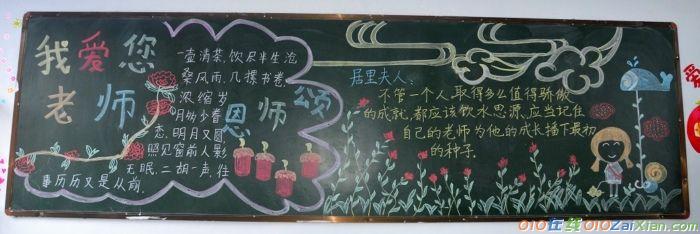 我爱您
老师
恩师颂
一壶清茶，饮尽半生沧
桑风雨，几摞书卷，
浓缩岁
月的少看
态，明月又圆
照见窗前人影
无眠，二胡一声，往
事历历又是从前。
居里夫人：
不管一个人取得多么值得骄傲
的成就，都应该饮水思源，应当记住
自己的老师为他的成长播下最初
的种子。
爱
010在线010ZaiXian.com